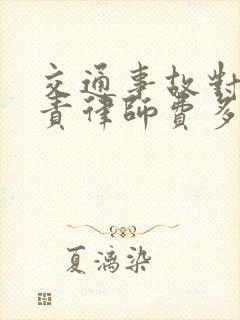 交通事故對
責律師費多
夏漓染